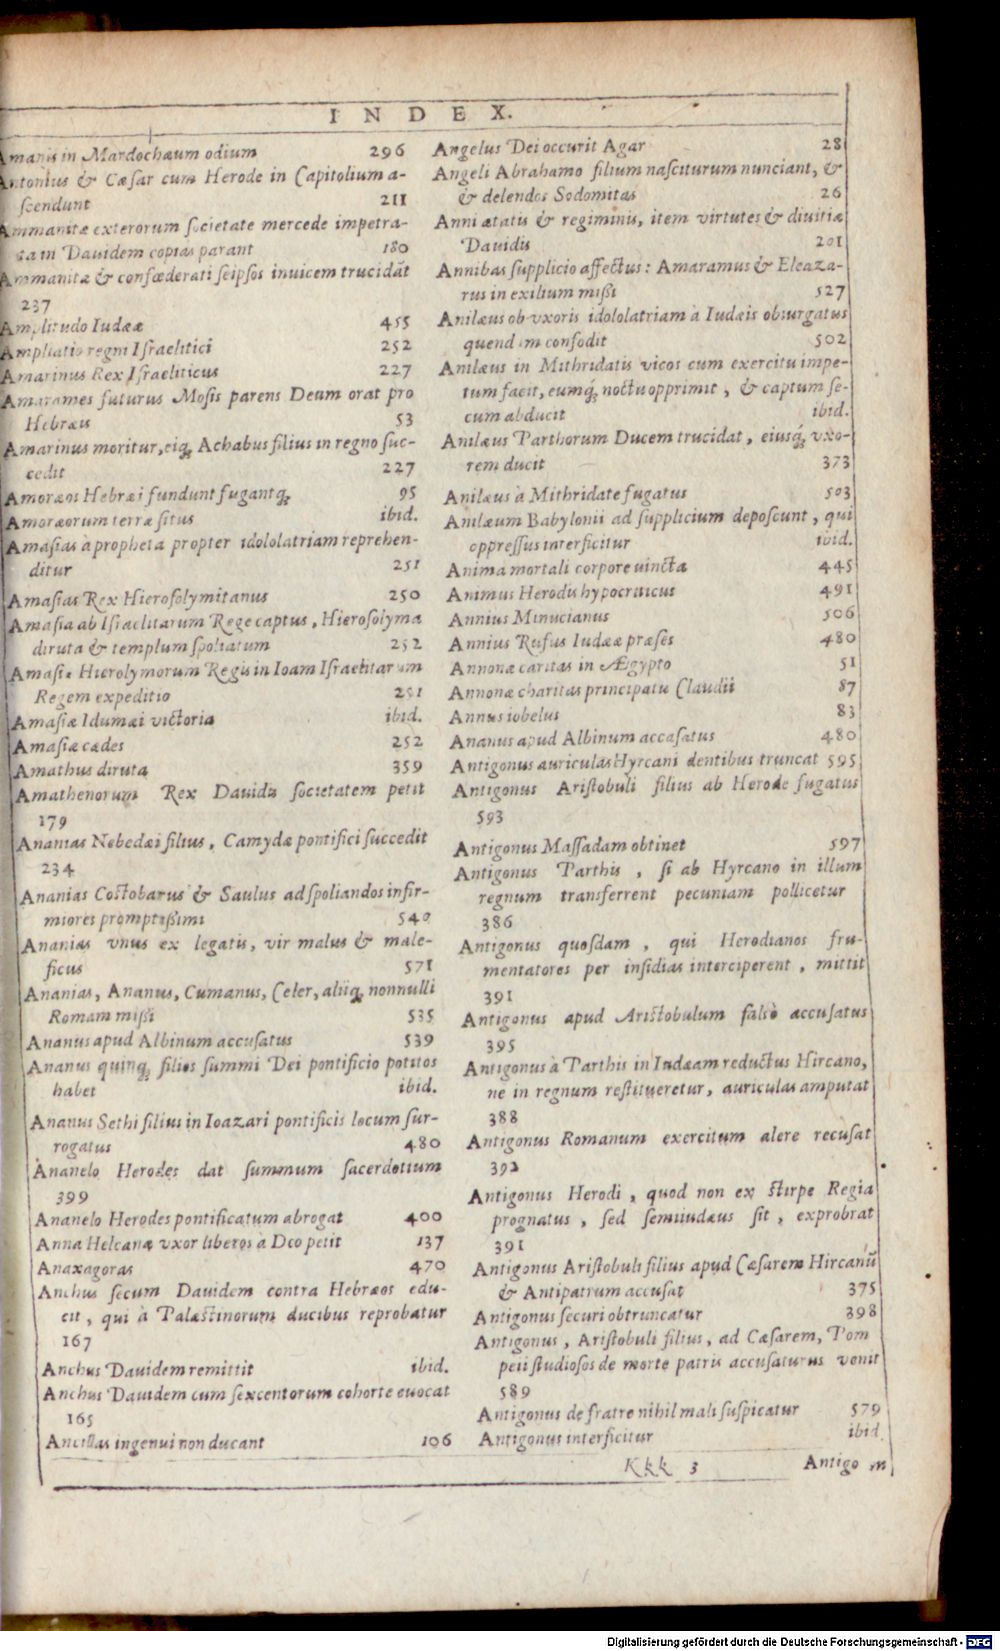 INDEX.
Amanis in Mardochæum odium 296
Antonius & Cæsar cum Herode in Capitolium a-
scendunt 211
Ammanitæ exterorum societate mercede impetra-
ta in Dauidem copias parant 180
Ammanitæ & confœderati seipsos inuicem trucidāt
237
Amplitudo Iudææ 455
Ampliatio regni Israelitici 252
Amarinus Rex Israeliticus 227
Amarames futurus Mosis parens Deum orat pro
Hebræis 53
Amarinus moritur, eiq; Achabus filius in regno suc-
cedit 227
Amoræos Hebræi fundunt fugantq; 95
Amoræorum terræ situs ibid.
Amasias à propheta propter idololatriam reprehen-
ditur 251
Amasias Rex Hierosolymitanus 250
Amasia ab Israelitarum Rege captus, Hierosolyma
diruta & templum spoliatum 252
Amasiæ Hierolymorum Regis in Ioam Israelitarum
Regem expeditio 251
Amasiæ Idumæi victoria ibid.
Amasiæ cædes 252
Amathus diruta 359
Amathenorum Rex Dauidis societatem petit
179
Ananias Nebedæi filius, Camydæ pontifici succedit
234
Ananias Costobarus & Saulus ad spoliandos infir-
miores promptißimi 540
Ananias vnus ex legatis, vir malus & male-
ficus 571
Ananias, Ananus, Cumanus, Celer, aliiq; nonnulli
Romam mißi 535
Ananus apud Albinum accusatus 539
Ananus quinq; filios summi Dei pontificio potitos
habet ibid.
Ananus Sethi filius in Ioazari pontificis locum sur-
rogatus 480
Ananelo Herodes dat summum sacerdotium
399
Ananelo Herodes pontificatum abrogat 400
Anna Helcanæ vxor liberos à Deo petit 137
Anaxagoras 470
Anchus secum Dauidem contra Hebræos edu-
cit, qui à Palæstinorum ducibus reprobatur
167
Anchus Dauidem remittit ibid.
Anchus Dauidem cum sexcentorum cohorte euocat
165
Ancillas ingenui non ducant 106
Angelus Dei occurit Agar 28
Angeli Abrahamo filium nasciturum nunciant, &
& delendos Sodomitas 26
Anni ætatis & regiminis, item virtutes & diuitiæ
Dauidis 201
Annibas supplicio affectus: Amaramus & Eleaza-
rus in exilium mißi 527
Anilæus ob vxoris idololatriam à Iudæis obiurgatus
quendam confodit 502
Anilæus in Mithridatis vicos cum exercitu impe-
tum facit, eumq́; noctu opprimit, & captum se-
cum abducit ibid.
Anilæus Parthorum Ducem trucidat, eiusq́; vxo-
rem ducit 373
Anilæus à Mithridate fugatus 503
Anilæum Babylonii ad supplicium deposcunt, qui
oppressus interficitur ibid.
Anima mortali corpore uincta 445
Animus Herodis hypocriticus 491
Annius Minucianus 506
Annius Rufus Iudææ præses 480
Annonæ caritas in Ægypto 51
Annonæ charitas principatu Claudii 87
Annus iobelus 83
Ananus apud Albinum accusatus 480
Antigonus auriculas Hyrcani dentibus truncat 595
Antigonus Aristobuli filius ab Herode fugatus
593
Antigonus Massadam obtinet 597
Antigonus Parthis, si ab Hyrcano in illum
regnum transferrent pecuniam pollicetur
386
Antigonus quosdam, qui Herodianos fru-
mentatores per insidias interciperent, mittit
391
Antigonus apud Aristobulum falsò accusatus
395
Antigonus à Parthis in Iudæam reductus Hircano,
ne in regnum restitueretur, auriculas amputat
388
Antigonus Romanum exercitum alere recusat
392
Antigonus Herodi, quod non ex stirpe Regia
prognatus, sed semiiudæus sit, exprobrat
391
Antigonus Aristobuli filius apud Cæsarem Hircanū
& Antipatrum accusat 375
Antigonus securi obtruncatur 398
Antigonus, Aristobuli filius, ad Cæsarem, Pom
peii studiosos de morte patris accusaturus venit
589
Antigonus de fratre nihil mali suspicatur 579
Antigonus interficitur ibid
Kkk 3 Antigo m
Digitalisierung gefördert durch die Deutsche Forschungsgemeinschaft - DFG